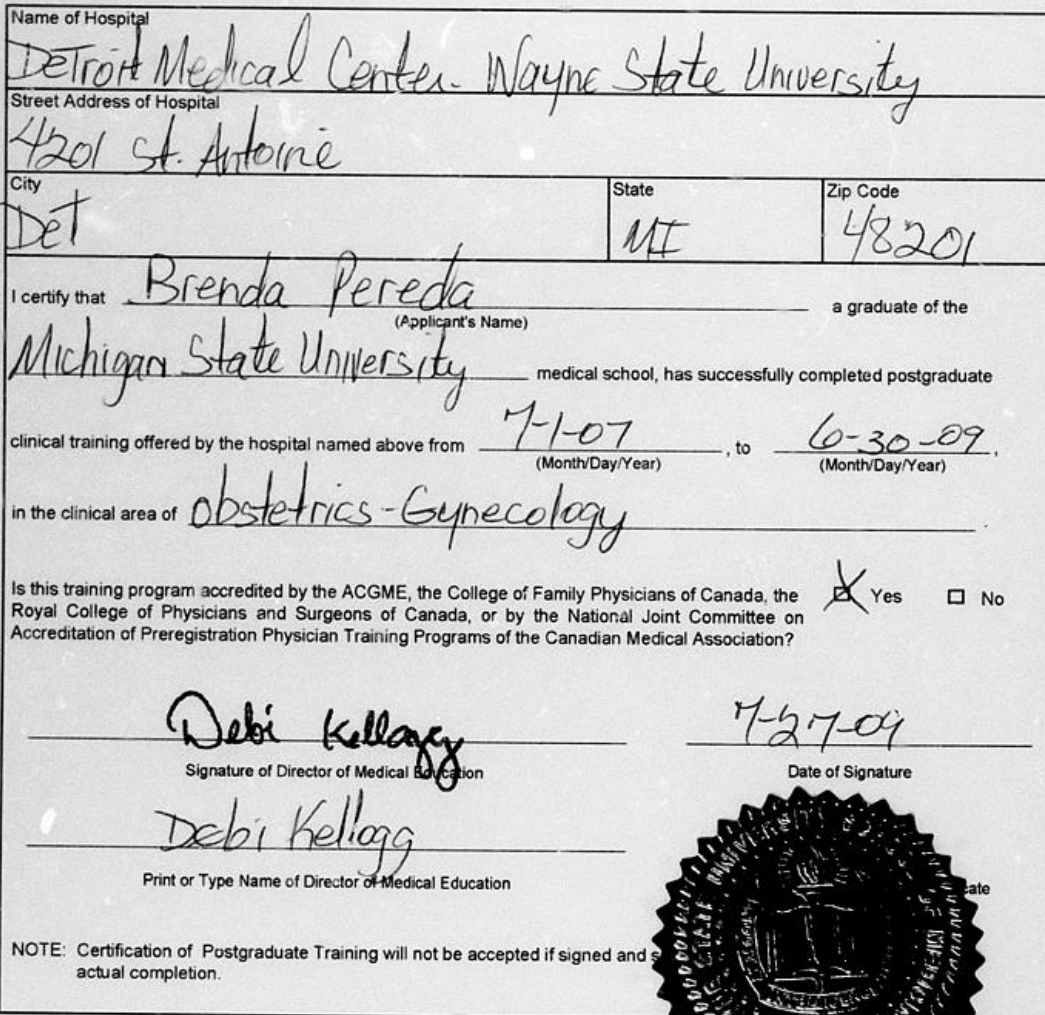 Name of Hospital
Detroit Medical Center- Wayne State University
Street Address of Hospital
4201 St. Antoine
City State Zip Code
Det MI 48201
I certify that Brenda Pereda a graduate of the
(Applicant's Name)
Michigan State University medical school, has successfully completed postgraduate
clinical training offered by the hospital named above from 7-1-07, to 6-30-09,
(Month/Day/Year) (Month/Day/Year)
in the clinical area of Obstetrics-Gynecology
Is this training program accredited by the ACGME, the College of Family Physicians of Canada, the Yes No
Royal College of Physicians and Surgeons of Canada, or by the National Joint Committee on
Accreditation of Preregistration Physician Training Programs of the Canadian Medical Association?
Debi Kellogg 7-27-09
Signature of Director of Medical Education Date of Signature
Debi Kellogg
Print or Type Name of Director of Medical Education
NOTE: Certification of Postgraduate Training will not be accepted if signed and
actual completion.